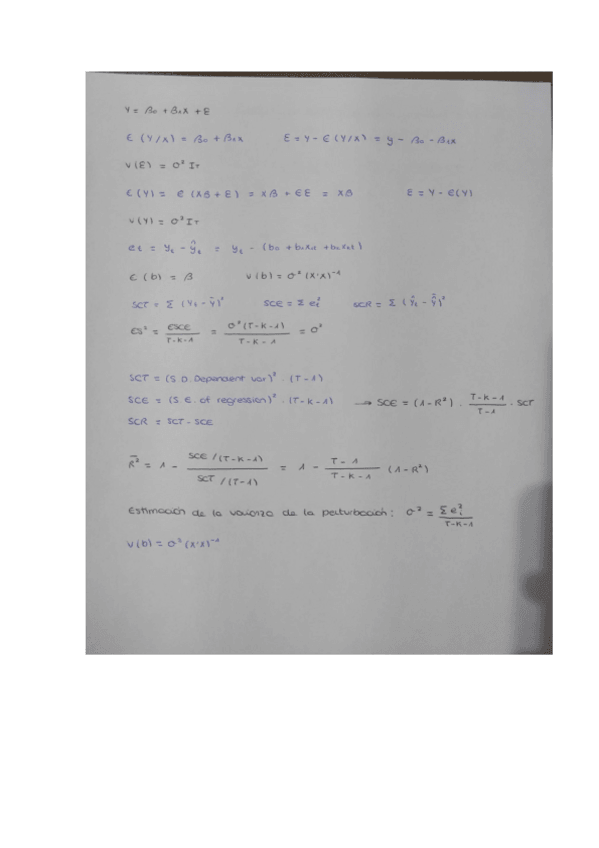 Y = β0 + β1X + ε
E (Y/X) = β0 + β1X    ε = Y - E (Y/X) = y - β0 - β1X
V(ε) = σ² IT
E (Y) = E (Xβ + ε) = Xβ + Eε = Xβ    ε = Y - E(Y)
V(Y) = σ² IT
et = yt - ŷt = yt - (b0 + b1x1t + b2x2t)
E (b) = β    V(b) = σ² (X'X)⁻¹
SCT = Σ (Yt - Ȳ)²    SCE = Σ et²    SCR = Σ (Ŷt - Ŷ̄)²
ES² = ESCE / T-K-1 = σ² (T-K-1) / T-K-1 = σ²
SCT = (S D. Dependent var)² · (T-1)
SCE = (S E. of regression)² · (T-K-1) → SCE = (1-R²) · T-K-1 / T-1 · SCT
SCR = SCT - SCE
R̄² = 1 - SCE /(T-K-1) / SCT /(T-1) = 1 - T-1 / T-K-1 (1-R²)
Estimación de la varianza de la perturbación: σ² = Σ ei² / T-K-1
V(b) = σ² (X'X)⁻¹